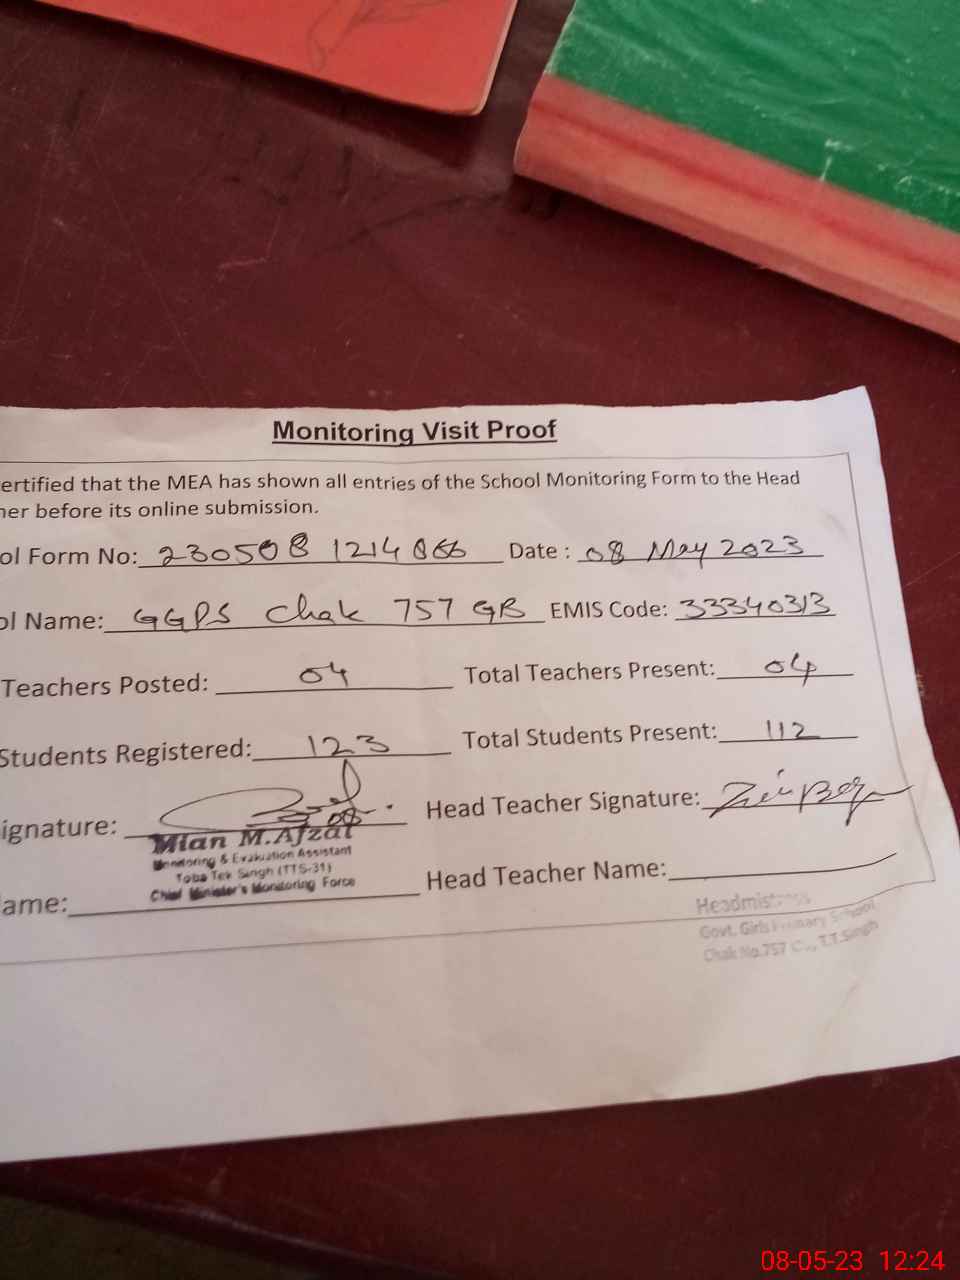 Monitoring Visit Proof
ertified that the MEA has shown all entries of the School Monitoring Form to the Head
her before its online submission.
ol Form No: 230508 1214866 Date : 08 May 2023
ol Name: GGPS Chak 757 GB EMIS Code: 33340313
Teachers Posted: 04 Total Teachers Present: 04
Students Registered: 123 Total Students Present: 112
ignature: Head Teacher Signature:
Mian M.Afzal
Monitoring & Evaluation Assistant
Toba Tek Singh (TTS-31)
Chief Minister's Monitoring Force
ame: Head Teacher Name:
Headmistress
Govt. Girls Primary School
Chak No.757 T.T.Singh
08-05-23 12:24